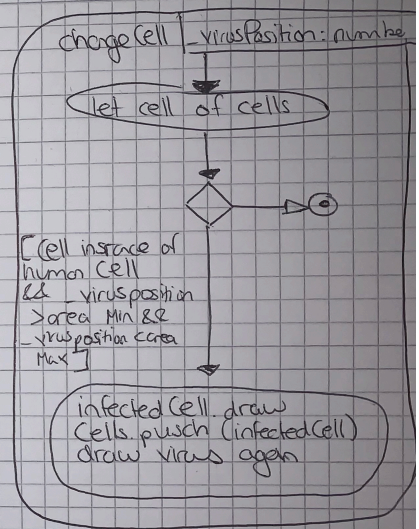 changeCell _virusPosition: numbe
let cell of cells
[Cell insrace of
human Cell
&& _virusposition
>area Min &&
_virusposition <area
Max]
infectedCell.draw
Cells.pusch (infectedCell)
draw virus agen